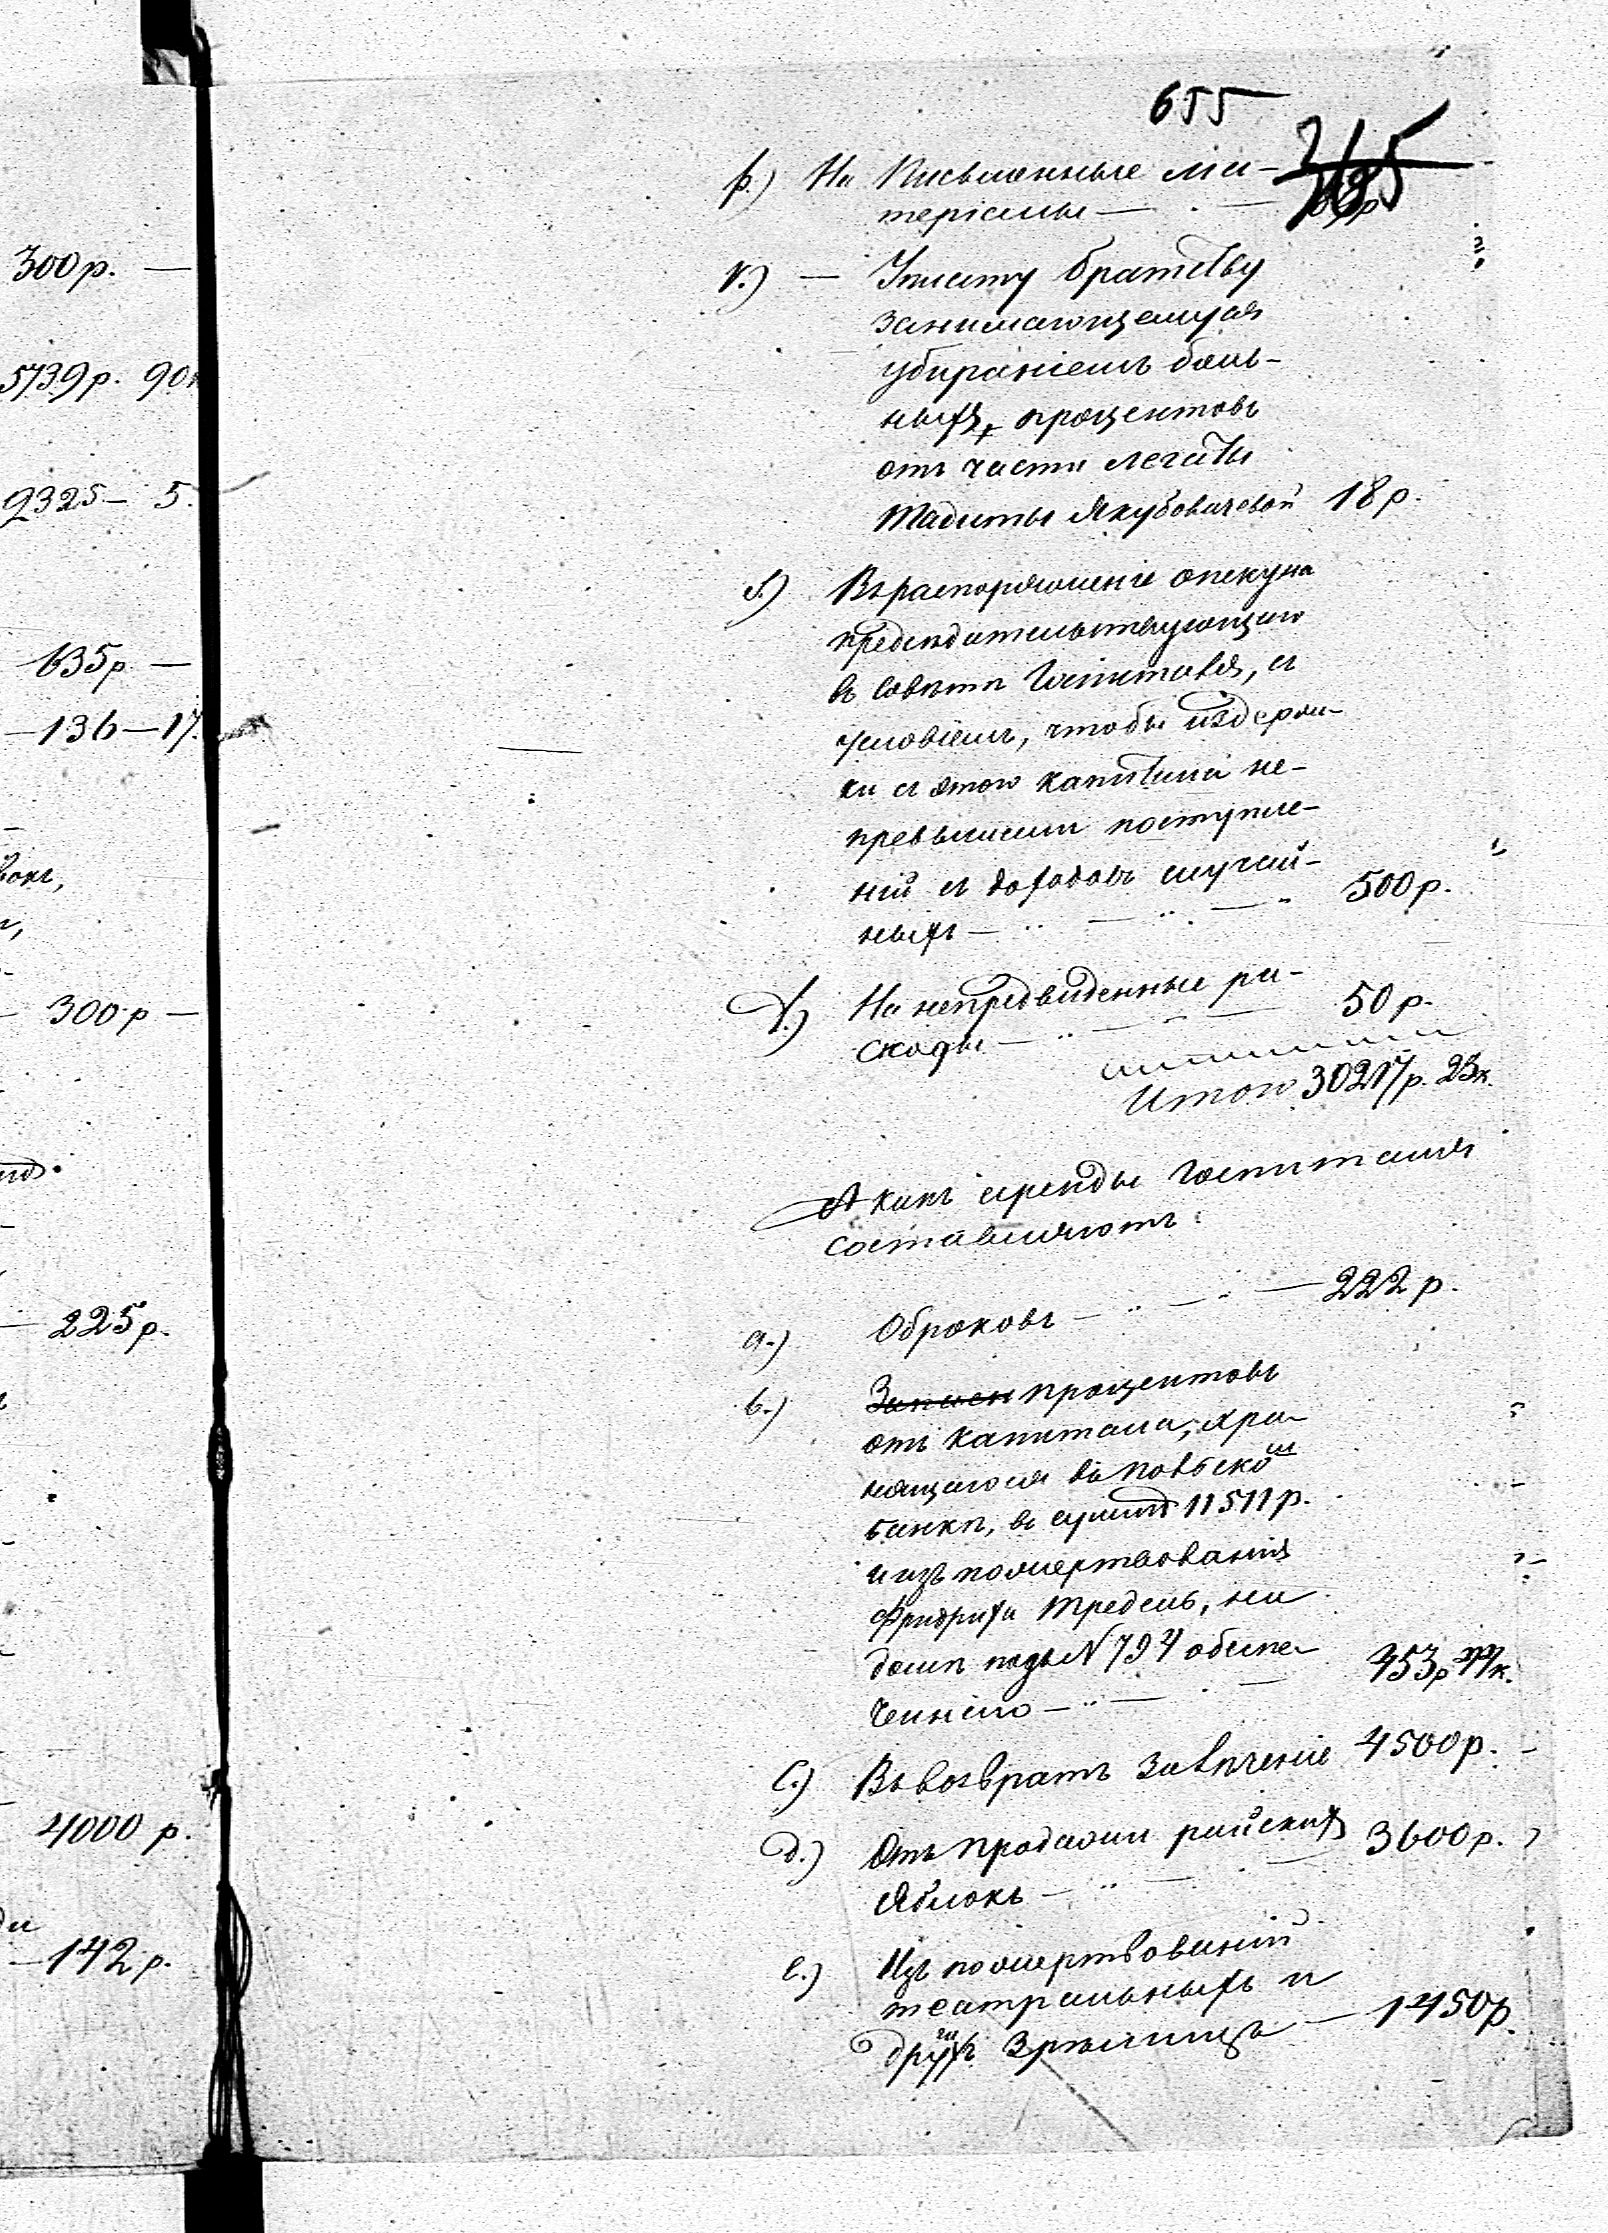 300 р. —
5739 р. 90к
2325 — 5.
635 р —
— 136 — 17.
300 р —
— 225 р.
4000 р.
— 142 р.
655
р.) На письменные ма-
теріалы —
r.) — Уплату братству
занимающемуся
убираніемъ боль-
ныхъ, процентовъ
отъ части легаты
Тадиты Якубовичевой 18 р.
s.) Въ распоряженіе опекуна
предсѣдательствующаго
въ Совѣтѣ Госпиталя, съ
условіемъ, чтобы издерж-
ки съ этого капитала не-
превышали поступле-
ній съ доходовъ случай-
ныхъ — 500 р.
t.) На непредвиденные ра-
сходы — 50 р.
Итого 30217 р. 23 к.
А какъ аренды Госпиталя
составляютъ:
a.) Оброковъ — 222 р.
b.) процентовъ
отъ капитала, хра-
нящагося въ Польском
банкѣ, въ суммѣ 11511 р.
и изъ пожертвованія
Фридриха Тредель, на
домѣ подъ N 794 обезпе-
ченнаго — 453 р
c.) Въ возвратъ за лѣченіе 4500 р. —
d.) Отъ продажи райскихъ 3600 р.
яблокъ —
e.) Изъ пожертвованій
театральныхъ и
другихъ зрѣлищъ — 1450 р.